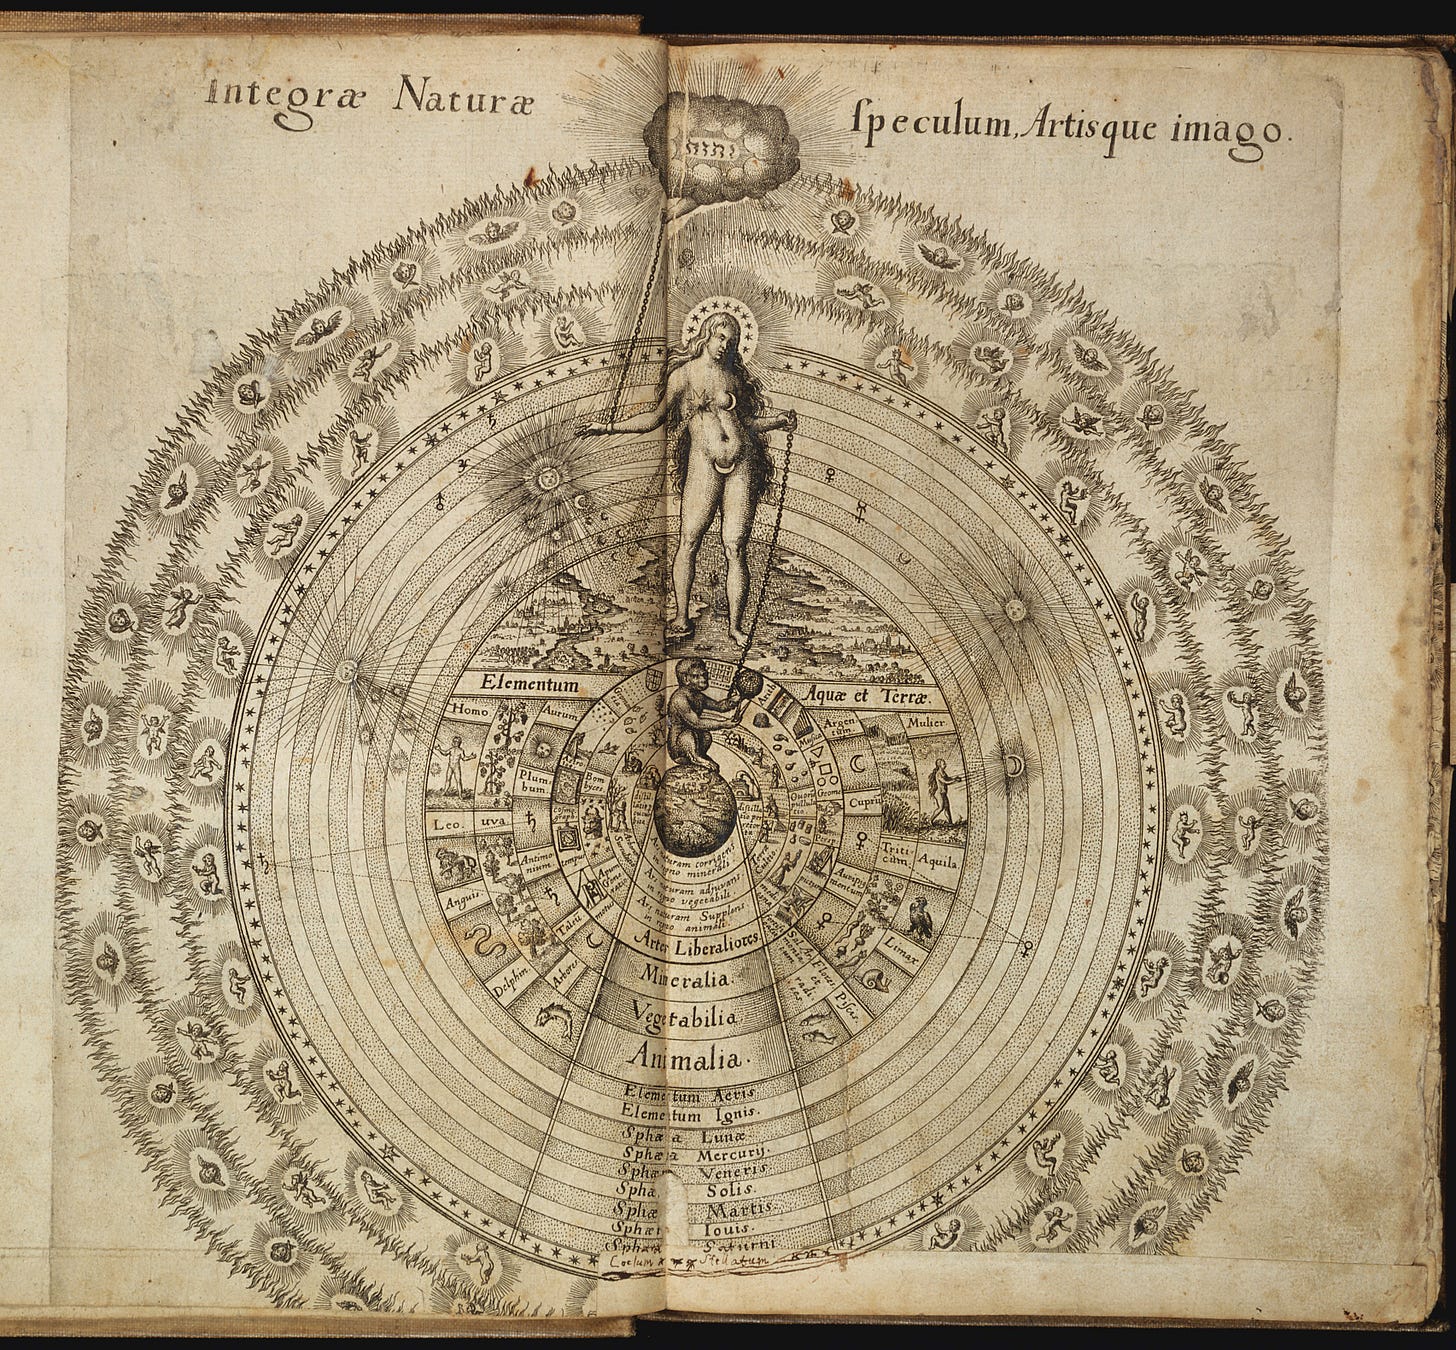 Integræ Naturæ
ſpeculum, Artisque imago.
יהוה
Elementum
Aquæ et Terræ.
Homo
Aurum
Argen
tum
Mulier
Plum
bum
Bom
byces
Cupru
Leo.
uva.
Triti
cum
Aquila
Antimo
nium
Auripig
mentum
Anguis.
Talcu
Limax
Delphin.
Arbores
Flores
et
radi
ces
Piſcis.
naturam corrigens
in regno minerali
Ars naturam adjuvans
in regno vegetabili
Ars naturam Supplens
in regno animali
Artes Liberaliores
Mineralia.
Vegetabilia
Animalia.
Elementum Aeris
Elementum Ignis.
Sphæra Lunæ
Sphæra Mercurij.
Sphæra Veneris
Sphæ Solis.
Sphæ Martis
Sphær Iouis.
Sphæra Saturni
Coelum Stellatum